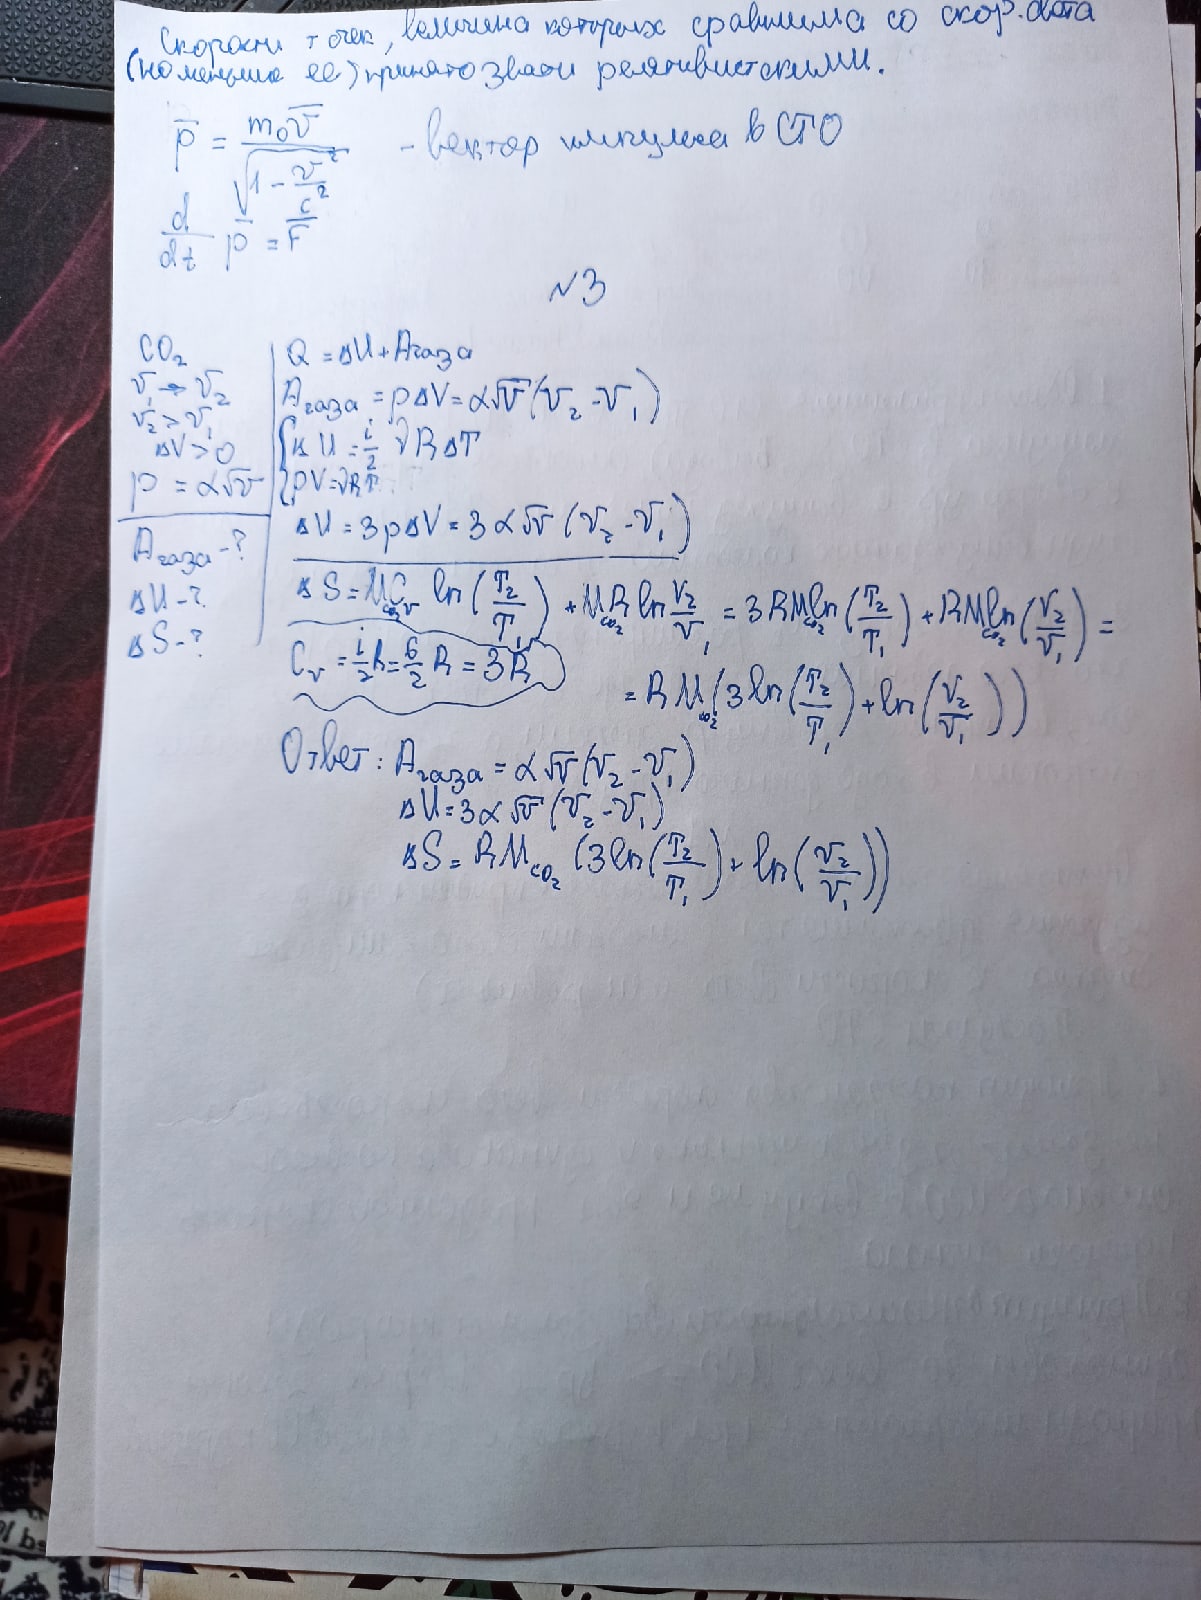 Скорости точек, величина которых сравнима со скор. света
(но меньше ее) принято звать релятивистскими.
p̅ = m₀v̅ / √(1 - v²/c²) - вектор импульса в СТО
d/dt p̅ = F̅
№3
CO₂
V₁ → V₂
V₂ > V₁
ΔV > 0
p = α√V
Aгаза - ?
ΔU - ?
ΔS - ?
Q = ΔU + Aгаза
Aгаза = pΔV = α√V (V₂ - V₁)
{ ΔU = i/2 νRΔT
{ pV = νRT
ΔU = 3pΔV = 3α√V (V₂ - V₁)
ΔS = M_CO₂ Cᵥ ln(T₂/T₁) + M_CO₂ R ln V₂/V₁ = 3RM_CO₂ ln(T₂/T₁) + RM_CO₂ ln(V₂/V₁) =
Cᵥ = i/2 R = 6/2 R = 3R
= RM_CO₂ (3ln(T₂/T₁) + ln(V₂/V₁))
Ответ: Aгаза = α√V (V₂ - V₁)
ΔU = 3α√V (V₂ - V₁)
ΔS = RM_CO₂ (3ln(T₂/T₁) + ln(V₂/V₁))